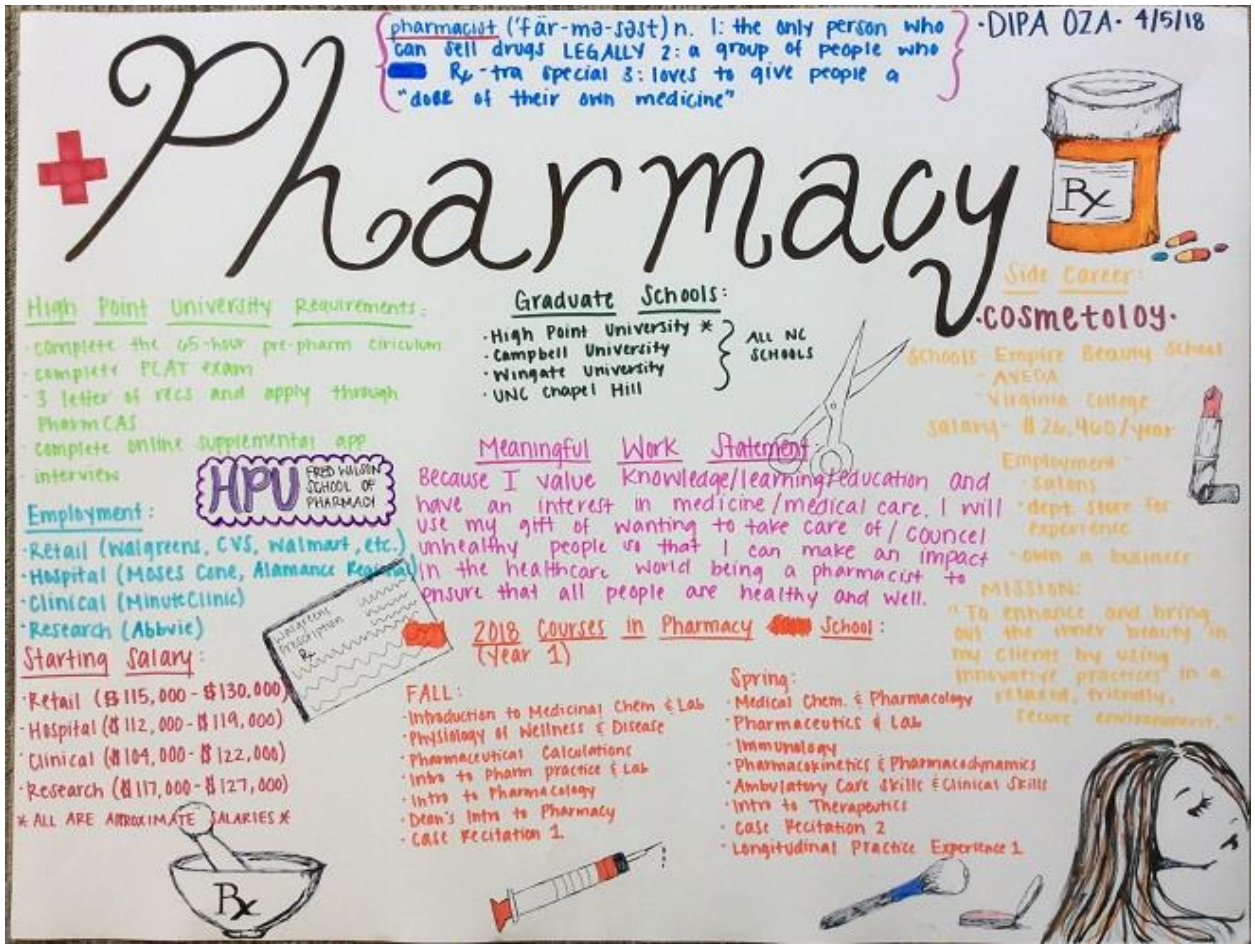 pharmacist ('fär-mə-səst) n. 1: the only person who
can sell drugs LEGALLY 2: a group of people who
Rx-tra special 3: loves to give people a
"dose of their own medicine"
·DIPA OZA· 4/5/18
Pharmacy
Rx
High Point University Requirements:
·complete the 65-hour pre-pharm ciriculum
·complete PCAT exam
·3 letter of recs and apply through
PharmCAS
·complete online supplemental app
·interview
HPU
FRED WILSON
SCHOOL OF
PHARMACY
Employment:
·Retail (Walgreens, CVS, Walmart, etc.)
·Hospital (Moses Cone, Alamance Regional)
·Clinical (MinuteClinic)
·Research (Abbvie)
Starting Salary:
·Retail ($115,000-$130,000)
·Hospital ($112,000-$119,000)
·Clinical ($104,000-$122,000)
·Research ($117,000-$127,000)
*ALL ARE APPROXIMATE SALARIES*
Rx
Graduate Schools:
·High Point University *
·Campbell University
·Wingate University
·UNC Chapel Hill
ALL NC
SCHOOLS
Meaningful Work Statement:
Because I value knowledge/learning/education and
have an interest in medicine/medical care, I will
use my gift of wanting to take care of/councel
unhealthy people so that I can make an impact
in the healthcare world being a pharmacist to
ensure that all people are healthy and well.
Walgreens
Prescription
Rx
2018 Courses in Pharmacy School:
(Year 1)
FALL:
·Introduction to Medicinal Chem & Lab
·Physiology of Wellness & Disease
·Pharmaceutical Calculations
·Intro to Pharm practice & Lab
·Intro to Pharmacology
·Dean's Intro to Pharmacy
·Case Recitation 1
Spring:
·Medical Chem. & Pharmacology
·Pharmaceutics & Lab
·Immunology
·Pharmacokinetics & Pharmacodynamics
·Ambulatory Care Skills & Clinical Skills
·Intro to Therapeutics
·Case Recitation 2
·Longitudinal Practice Experience 1
Side Career:
·cosmetoloy·
Schools-Empire Beauty School
-AVEDA
-Virginia College
Salary-$26,460/year
Employment-
·salons
·dept. store for
experience
·own a business
MISSION:
"To enhance and bring
out the inner beauty in
my clients by using
innovative practices in a
relaxed, friendly,
secure environment."